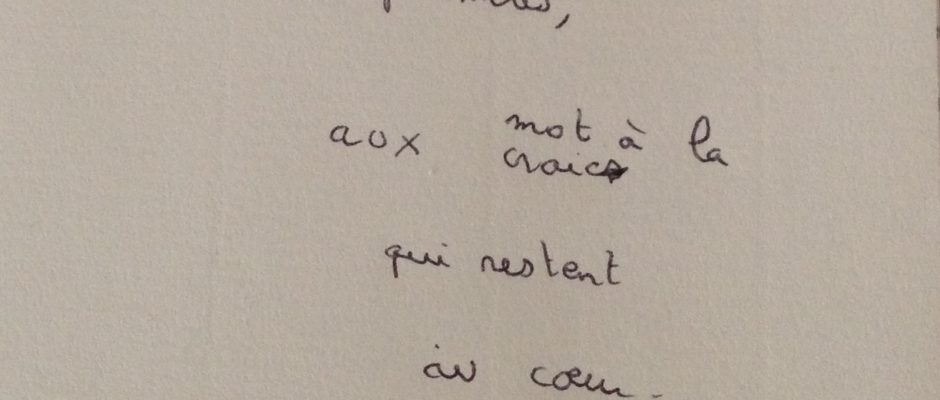 aux mot à la
craie
qui restent
au cœur.